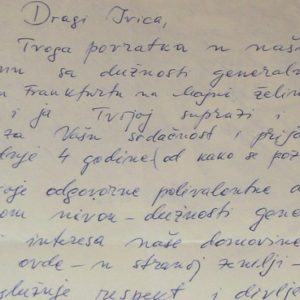 Dragi Ivica,
Tvoga povratka u naši
sa dužnosti general
Frankfurtu na Majni želim
i ja Tvojoj supruzi i
za Vašu srdačnost i prij
4 godine (od kako se poz
odgovorne polivalentne d
nivou – dužnosti gene
interesa naše domovine
ovde – u stranoj zemlji –
respekt i divlje